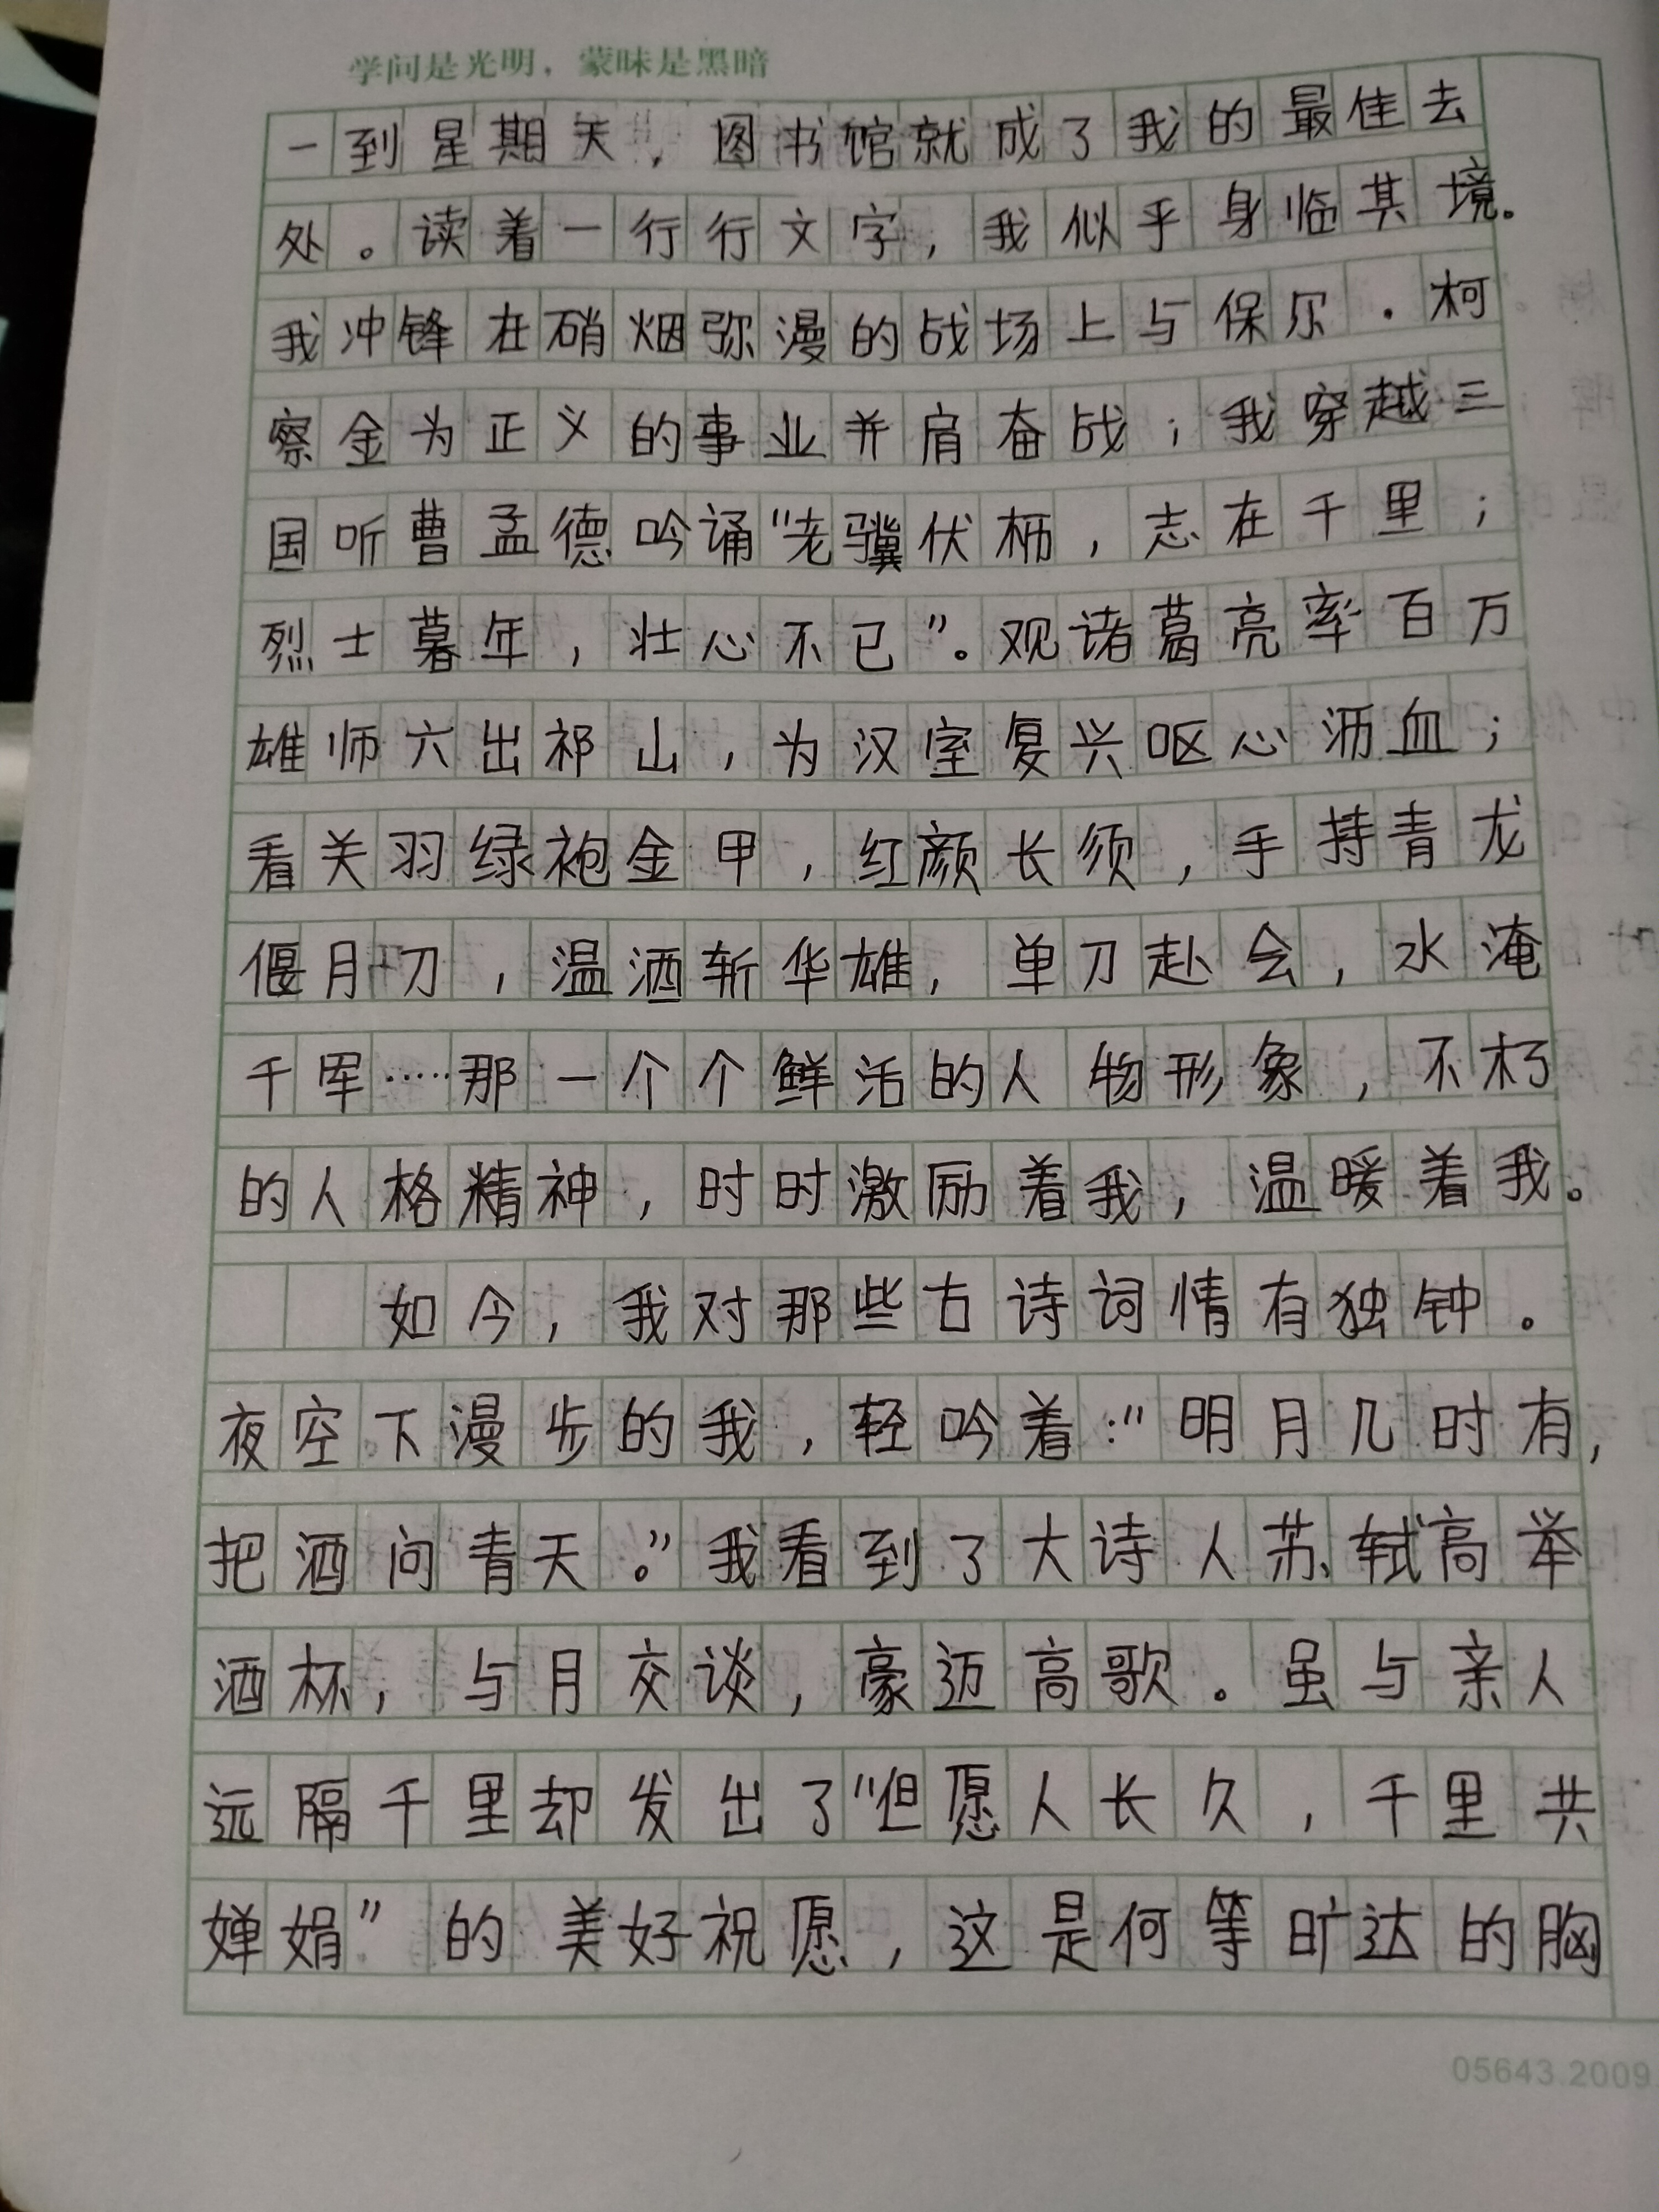 学问是光明，蒙昧是黑暗
一到星期天，图书馆就成了我的最佳去
处。读着一行行文字，我似乎身临其境。
我冲锋在硝烟弥漫的战场上与保尔．柯
察金为正义的事业并肩奋战；我穿越三
国听曹孟德吟诵“老骥伏枥，志在千里；
烈士暮年，壮心不已”。观诸葛亮率百万
雄师六出祁山，为汉室复兴呕心沥血；
看关羽绿袍金甲，红颜长须，手持青龙
偃月刀，温酒斩华雄，单刀赴会，水淹
千军……那一个个鲜活的人物形象，不朽
的人格精神，时时激励着我，温暖着我。
如今，我对那些古诗词情有独钟。
夜空下漫步的我，轻吟着：“明月几时有，
把酒问青天。”我看到了大诗人苏轼高举
酒杯，与月交谈，豪迈高歌。虽与亲人
远隔千里却发出了“但愿人长久，千里共
婵娟”的美好祝愿，这是何等旷达的胸
05643.2009.